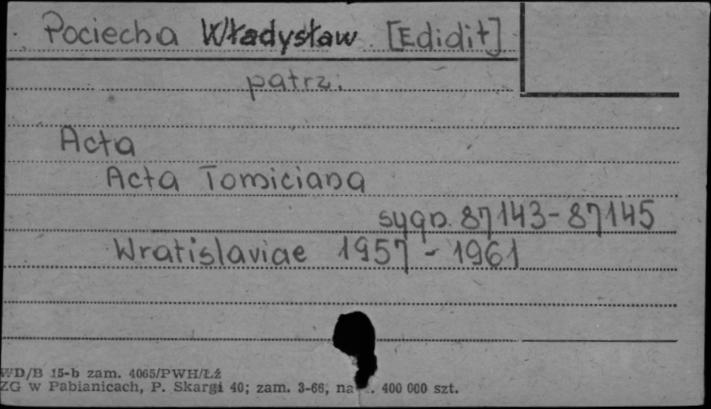 Pociecha Władysław [Edidit]
patrz:
Acta
Acta Tomiciana
sygn. 87143-87145
Wratislaviae 1957 - 1961
WD/B 15-b zam. 4065/PWH/Łź
ZG w Pabianicach, P. Skargi 40; zam. 3-66, na 400 000 szt.